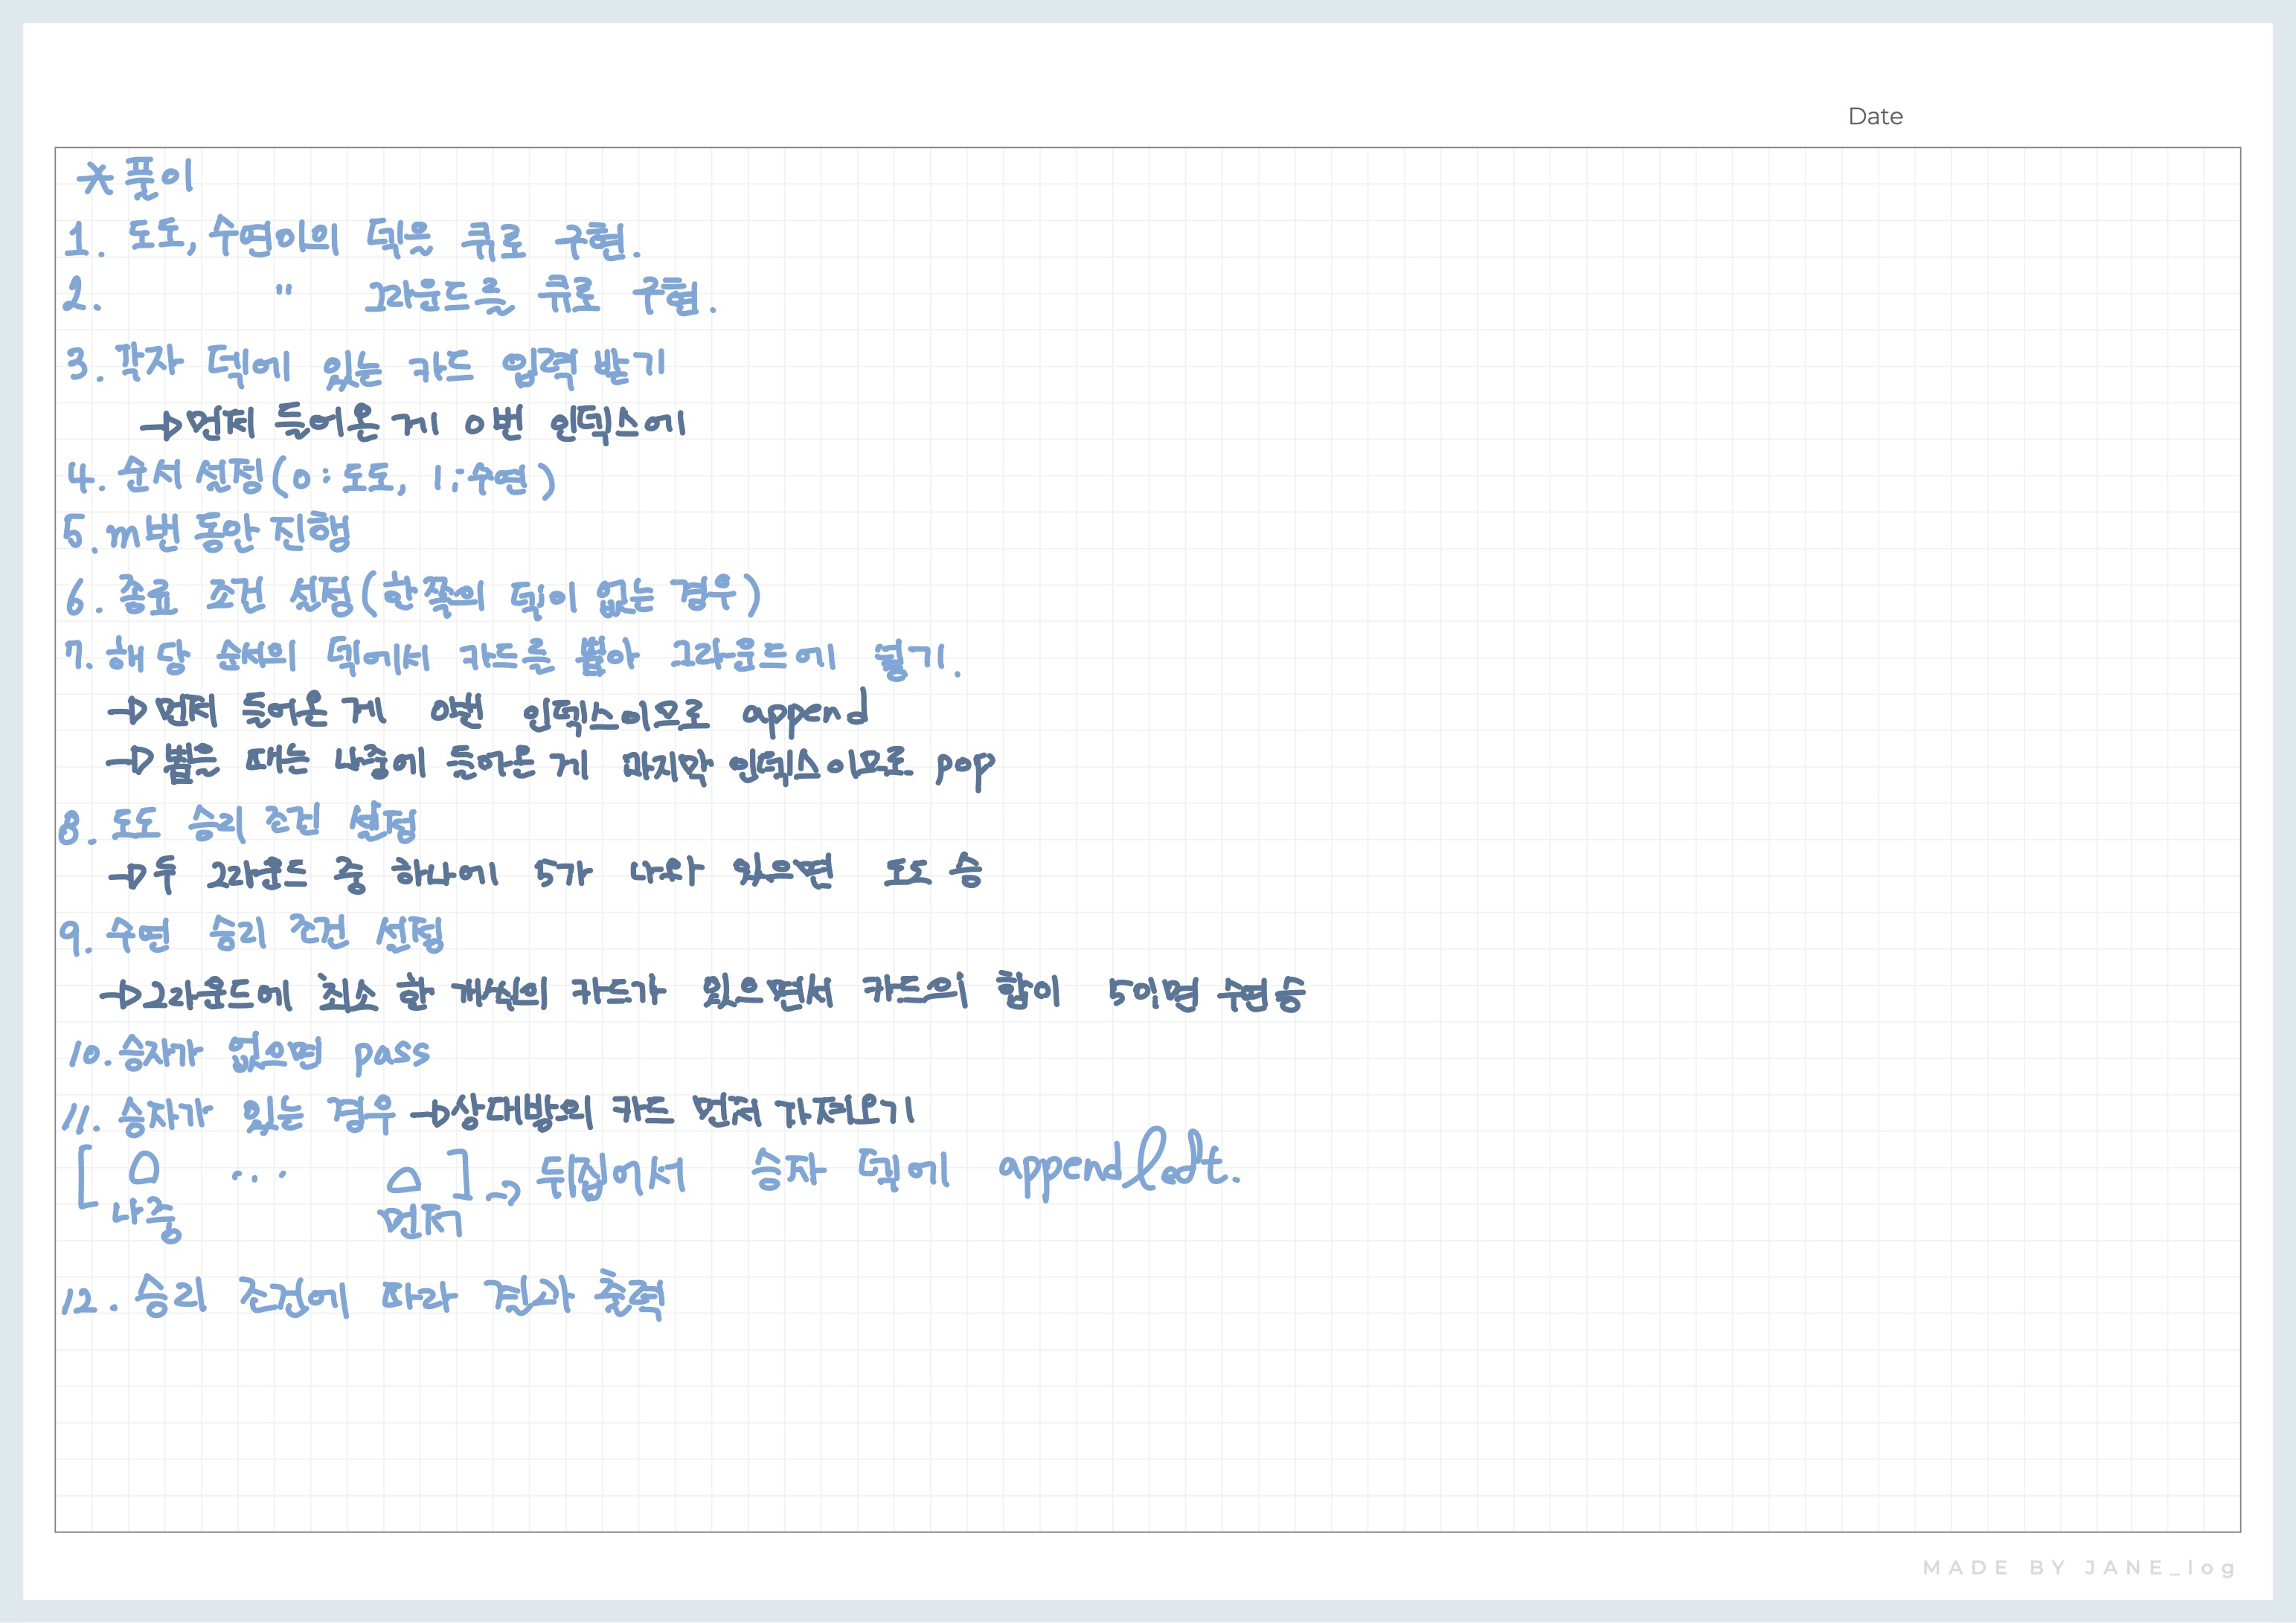 Date
*풀이
1. 도도, 수연이의 덱은 큐로 구현.
2. " 그라운드를 큐로 구현.
3. 각자 덱에 있는 카드 입력 받기
→먼저 들어온 게 0번 인덱스에
4. 순서 선정(0:도도, 1:수연)
5. m번 동안 진행
6. 종료 조건 설정(한쪽의 덱이 없는 경우)
7. 해당 순서의 덱에서 카드를 뽑아 그라운드에 넣기.
→먼저 들어온 게 0번 인덱스이므로 append
→뽑을 때는 나중에 들어온 게 마지막 인덱스이므로 pop
8. 도도 승리 조건 설정
→두 그라운드 중 하나에 5가 나와 있으면 도도 승
9. 수연 승리 조건 설정
→그라운드에 최소 한 개씩의 카드가 있으면서 카드의 합이 5이면 수연승
10. 승자가 없으면 pass
11. 승자가 있는 경우 →상대방의 카드 먼저 가져오기
[ △ ... △ ] → 뒤집어서 승자 덱에 appendleft.
나중 먼저
12. 승리 조건에 따라 결과 출력
MADE BY JANE_log